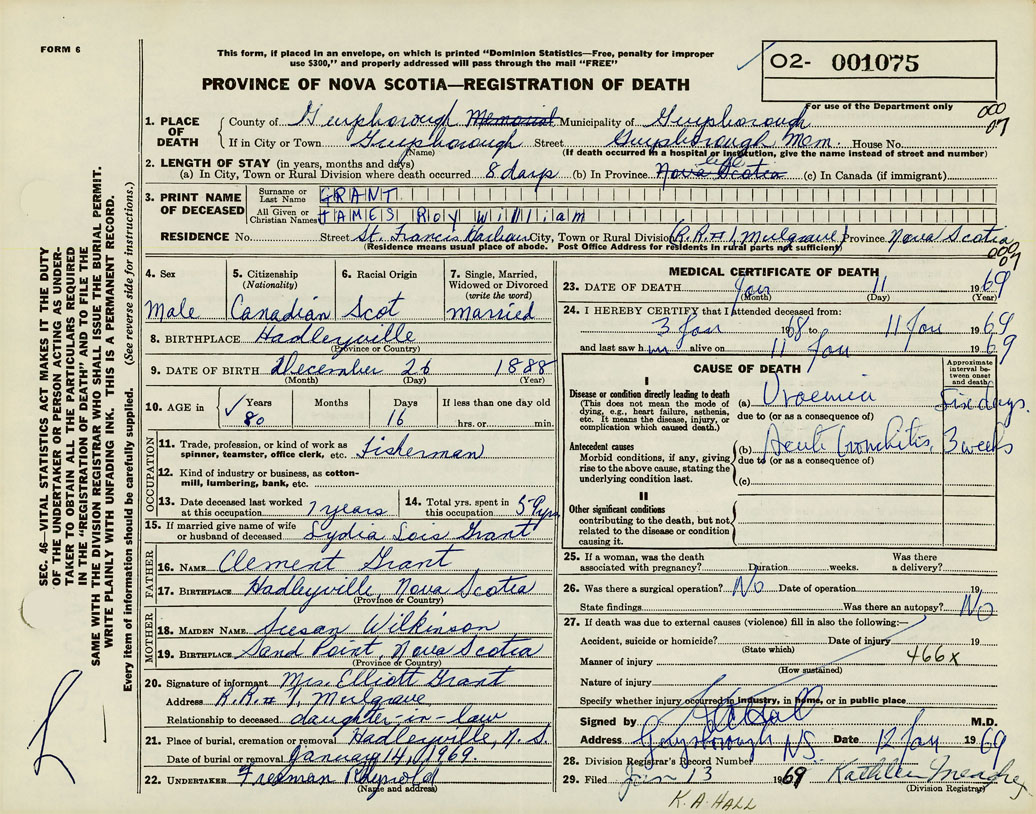 FORM 6
This form, if placed in an envelope, on which is printed "Dominion Statistics—Free, penalty for improper
use $300," and properly addressed will pass through the mail "FREE"
PROVINCE OF NOVA SCOTIA—REGISTRATION OF DEATH
02- 001075
For use of the Department only
000
07
1. PLACE OF DEATH
County of Guysborough Memorial Municipality of Guysborough
If in City or Town Guysborough Street Guysborough Mem. House No.
(Name) (If death occurred in a hospital or institution, give the name instead of street and number)
2. LENGTH OF STAY (in years, months and days)
(a) In City, Town or Rural Division where death occurred 8 days (b) In Province Nova Scotia life (c) In Canada (if immigrant)
3. PRINT NAME OF DECEASED
Surname or Last Name GRANT
All Given or Christian Names JAMES Roy William
RESIDENCE No. Street St. Francis Harbour City, Town or Rural Division (R.R.#1, Mulgrave) Province Nova Scotia
(Residence means usual place of abode. Post Office Address for residents in rural parts not sufficient)
000
07
4. Sex Male
5. Citizenship (Nationality) Canadian
6. Racial Origin Scot
7. Single, Married, Widowed or Divorced (write the word) married
8. BIRTHPLACE Hadleyville
(Province or Country)
9. DATE OF BIRTH December 26 1888
(Month) (Day) (Year)
10. AGE in Years 80 Months Days 16 If less than one day old hrs. or min.
OCCUPATION
11. Trade, profession, or kind of work as spinner, teamster, office clerk, etc. Fisherman
12. Kind of industry or business, as cotton-mill, lumbering, bank, etc.
13. Date deceased last worked at this occupation 7 years
14. Total yrs. spent in this occupation 59 yrs
15. If married give name of wife or husband of deceased Lydia Lois Grant
FATHER
16. NAME Clement Grant
17. BIRTHPLACE Hadleyville, Nova Scotia
(Province or Country)
MOTHER
18. MAIDEN NAME Susan Wilkinson
19. BIRTHPLACE Sand Point, Nova Scotia
(Province or Country)
20. Signature of informant Mrs. Elliott Grant
Address R.R.# 1, Mulgrave
Relationship to deceased daughter-in-law
21. Place of burial, cremation or removal Hadleyville, N.S.
Date of burial or removal January 14, 1969.
22. UNDERTAKER Freeman Reynold
(Name and address)
MEDICAL CERTIFICATE OF DEATH
23. DATE OF DEATH Jan 11 1969
(Month) (Day) (Year)
24. I HEREBY CERTIFY that I attended deceased from:
3 Jan 1968 to 11 Jan 1969
and last saw him alive on 11 Jan 1969
CAUSE OF DEATH
Approximate interval between onset and death
I
Disease or condition directly leading to death
(This does not mean the mode of dying, e.g., heart failure, asthenia, etc. It means the disease, injury, or complication which caused death.)
(a) Uraemia Six days
due to (or as a consequence of)
Antecedent causes
Morbid conditions, if any, giving rise to the above cause, stating the underlying condition last.
(b) Acute bronchitis, 3 weeks
due to (or as a consequence of)
(c)
II
Other significant conditions
contributing to the death, but not related to the disease or condition causing it.
25. If a woman, was the death associated with pregnancy? Duration weeks. Was there a delivery?
26. Was there a surgical operation? No Date of operation 19
State findings Was there an autopsy? No
27. If death was due to external causes (violence) fill in also the following:—
Accident, suicide or homicide? Date of injury 19
(State which)
Manner of injury 466x
(How sustained)
Nature of injury
Specify whether injury occurred in industry, in home, or in public place
Signed by M.D.
Address Guysborough NS Date 12 Jan 1969
28. Division Registrar's Record Number
29. Filed Jan 13 1969 Kathleen
(Division Registrar)
K. A. HALL
SEC. 46—VITAL STATISTICS ACT MAKES IT THE DUTY
OF THE UNDERTAKER OR PERSON ACTING AS UNDER-
TAKER TO OBTAIN ALL THE PARTICULARS REQUIRED
IN THE "REGISTRATION OF DEATH" AND TO FILE THE
SAME WITH THE DIVISION REGISTRAR WHO SHALL ISSUE THE BURIAL PERMIT.
WRITE PLAINLY WITH UNFADING INK. THIS IS A PERMANENT RECORD.
Every item of information should be carefully supplied. (See reverse side for instructions.)